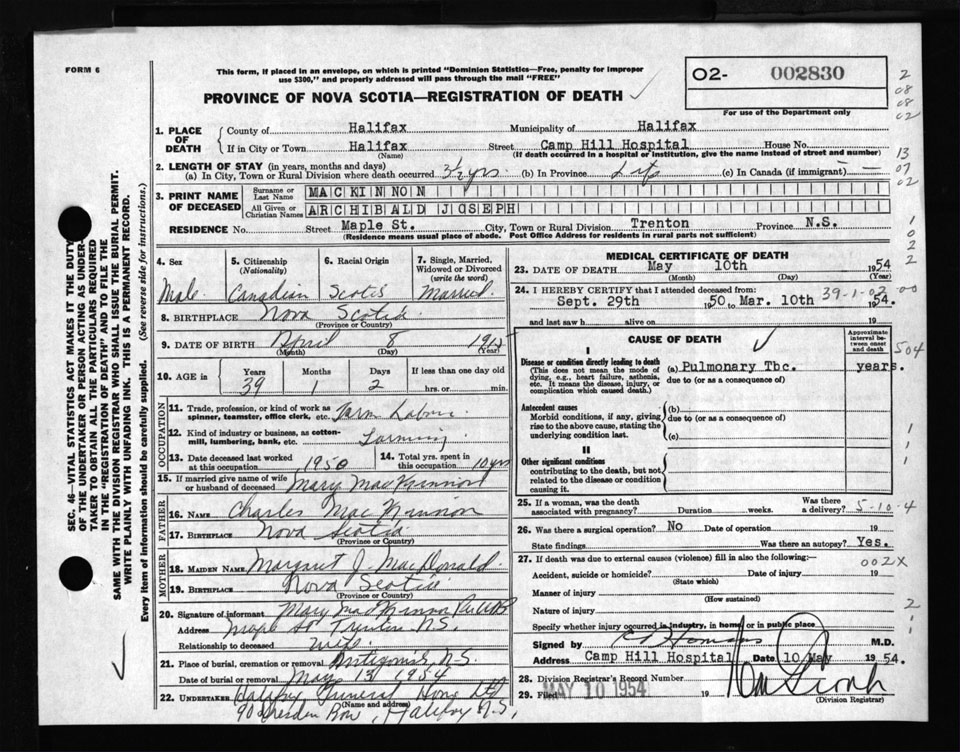 FORM 6
This form, if placed in an envelope, on which is printed "Dominion Statistics—Free, penalty for improper
use $300," and properly addressed will pass through the mail "FREE"
02- 002830
For use of the Department only
PROVINCE OF NOVA SCOTIA—REGISTRATION OF DEATH
SEC. 46—VITAL STATISTICS ACT MAKES IT THE DUTY
OF THE UNDERTAKER OR PERSON ACTING AS UNDER-
TAKER TO OBTAIN ALL THE PARTICULARS REQUIRED
IN THE "REGISTRATION OF DEATH" AND TO FILE THE
SAME WITH THE DIVISION REGISTRAR WHO SHALL ISSUE THE BURIAL PERMIT.
WRITE PLAINLY WITH UNFADING INK. THIS IS A PERMANENT RECORD.
Every item of information should be carefully supplied. (See reverse side for instructions.)
1. PLACE OF DEATH
County of Halifax Municipality of Halifax
If in City or Town Halifax Street Camp Hill Hospital House No.
(Name) (If death occurred in a hospital or institution, give the name instead of street and number)
2. LENGTH OF STAY (in years, months and days)
(a) In City, Town or Rural Division where death occurred 3½ yrs. (b) In Province Life (c) In Canada (if immigrant) —
3. PRINT NAME OF DECEASED
Surname or Last Name MACKINNON
All Given or Christian Names ARCHIBALD JOSEPH
RESIDENCE No. Street Maple St. City, Town or Rural Division Trenton Province N.S.
(Residence means usual place of abode. Post Office Address for residents in rural parts not sufficient)
4. Sex
Male
5. Citizenship (Nationality)
Canadian
6. Racial Origin
Scotis
7. Single, Married, Widowed or Divorced (write the word)
Married
8. BIRTHPLACE Nova Scotia
(Province or Country)
9. DATE OF BIRTH April 8 1915
(Month) (Day) (Year)
10. AGE in Years Months Days If less than one day old
39 1 2 hrs. or min.
OCCUPATION
11. Trade, profession, or kind of work as
spinner, teamster, office clerk, etc. Farm Labour
12. Kind of industry or business, as cotton-
mill, lumbering, bank, etc. Farming
13. Date deceased last worked
at this occupation 1950
14. Total yrs. spent
in this occupation 10 yrs
15. If married give name of wife
or husband of deceased Mary MacKinnon
FATHER
16. NAME Charles MacKinnon
17. BIRTHPLACE Nova Scotia
(Province or Country)
MOTHER
18. MAIDEN NAME Margaret J. MacDonald
19. BIRTHPLACE Nova Scotia
(Province or Country)
20. Signature of informant Mary MacKinnon
Address Maple St Trenton N.S.
Relationship to deceased Wife
21. Place of burial, cremation or removal Antigonish, N.S.
Date of burial or removal May 13 1954
22. UNDERTAKER Halifax Funeral Home Ltd
(Name and address)
90 Dresden Row, Halifax N.S.
MEDICAL CERTIFICATE OF DEATH
23. DATE OF DEATH May 10th 1954
(Month) (Day) (Year)
24. I HEREBY CERTIFY that I attended deceased from: 39-1-02-00
Sept. 29th 1950 to Mar. 10th 1954.
and last saw h alive on 19
CAUSE OF DEATH
Approximate interval between onset and death
I
Disease or condition directly leading to death
(This does not mean the mode of
dying, e.g., heart failure, asthenia,
etc. It means the disease, injury, or
complication which caused death.)
(a) Pulmonary Tbc. years.
due to (or as a consequence of)
Antecedent causes
Morbid conditions, if any, giving
rise to the above cause, stating the
underlying condition last.
(b)
due to (or as a consequence of)
(c)
II
Other significant conditions
contributing to the death, but not
related to the disease or condition
causing it.
25. If a woman, was the death
associated with pregnancy? Duration weeks. Was there
a delivery? 5-10-4
26. Was there a surgical operation? No Date of operation 19
State findings Was there an autopsy? Yes.
27. If death was due to external causes (violence) fill in also the following:— 002X
Accident, suicide or homicide? Date of injury 19
(State which)
Manner of injury
(How sustained)
Nature of injury
Specify whether injury occurred in industry, in home or in public place
Signed by M.D.
Address Camp Hill Hospital Date 10 May 1954.
28. Division Registrar's Record Number
29. Filed MAY 10 1954 19
(Division Registrar)
2
08
08
02
13
07
02
1
0
2
2
504
1
1
1
2
1